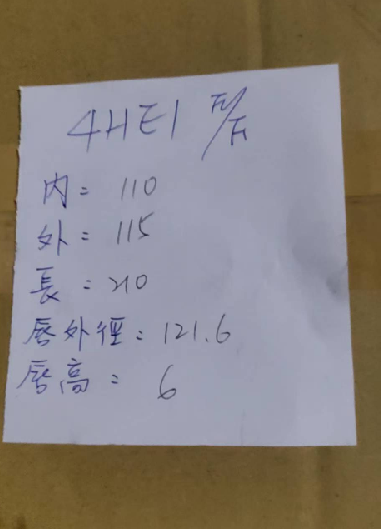 4HE1 F/F
內= 110
外= 115
長=210
唇外徑=121.6
唇高= 6